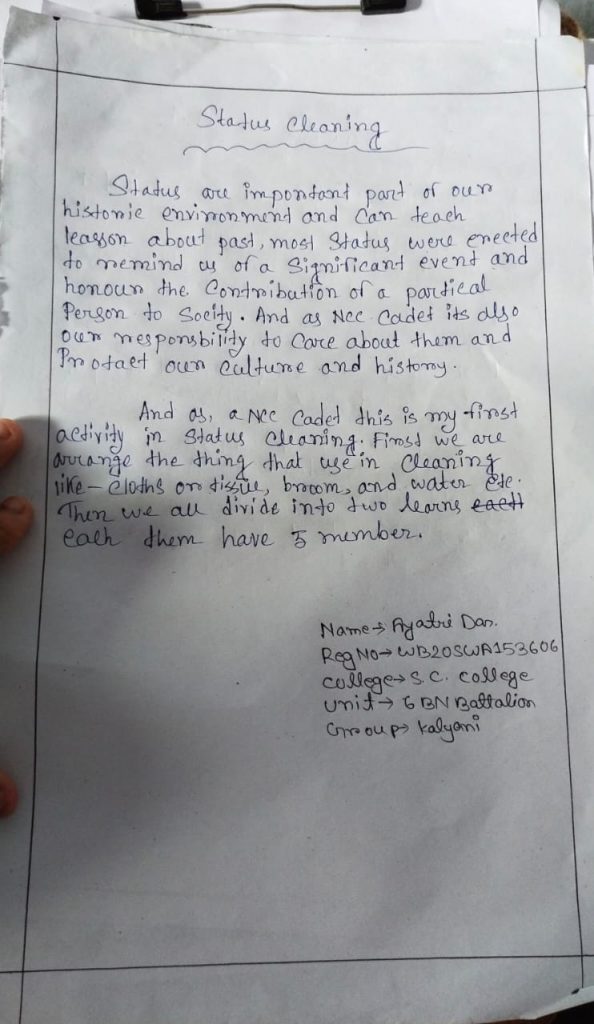 Status Cleaning
Status are important part of our
historic environment and can teach
leasson about past, most Status were erected
to remind us of a Significant event and
honour the Contribution of a partical
Person to Socity. And as Ncc Cadet its also
our responsbility to Care about them and
Protact our culture and history.
And as, a Ncc Cadet this is my first
activity in Status Cleaning. First we are
arrange the thing that use in Cleaning
like - Cloths or tissue, broom, and water etc.
Then we all divide into two tearns each
each them have 5 member.
Name→ Ayatri Das.
Reg No→ WB20SWA153606
College→ S.C. College
Unit→ 6 BN Battalion
Group→ Kalyani